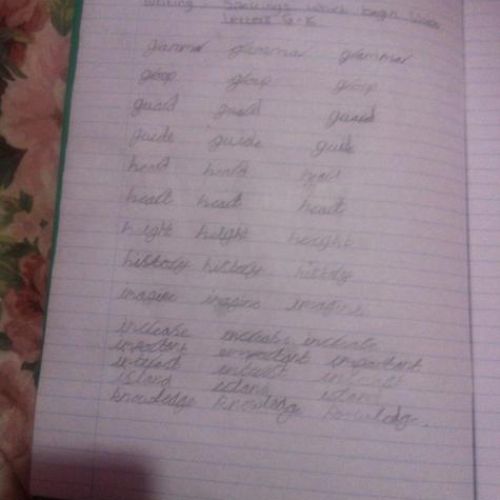 Writing : Spellings which begin with
letters G-K
grammar grammar grammar
group group group
guard guard guard
guide guide guide
heard heard heard
heart heart heart
hight height height
history history history
imagine imagine imagine
increase increase increase
important important important
interest interest interest
island island island
knowledge knowledge knowledge.